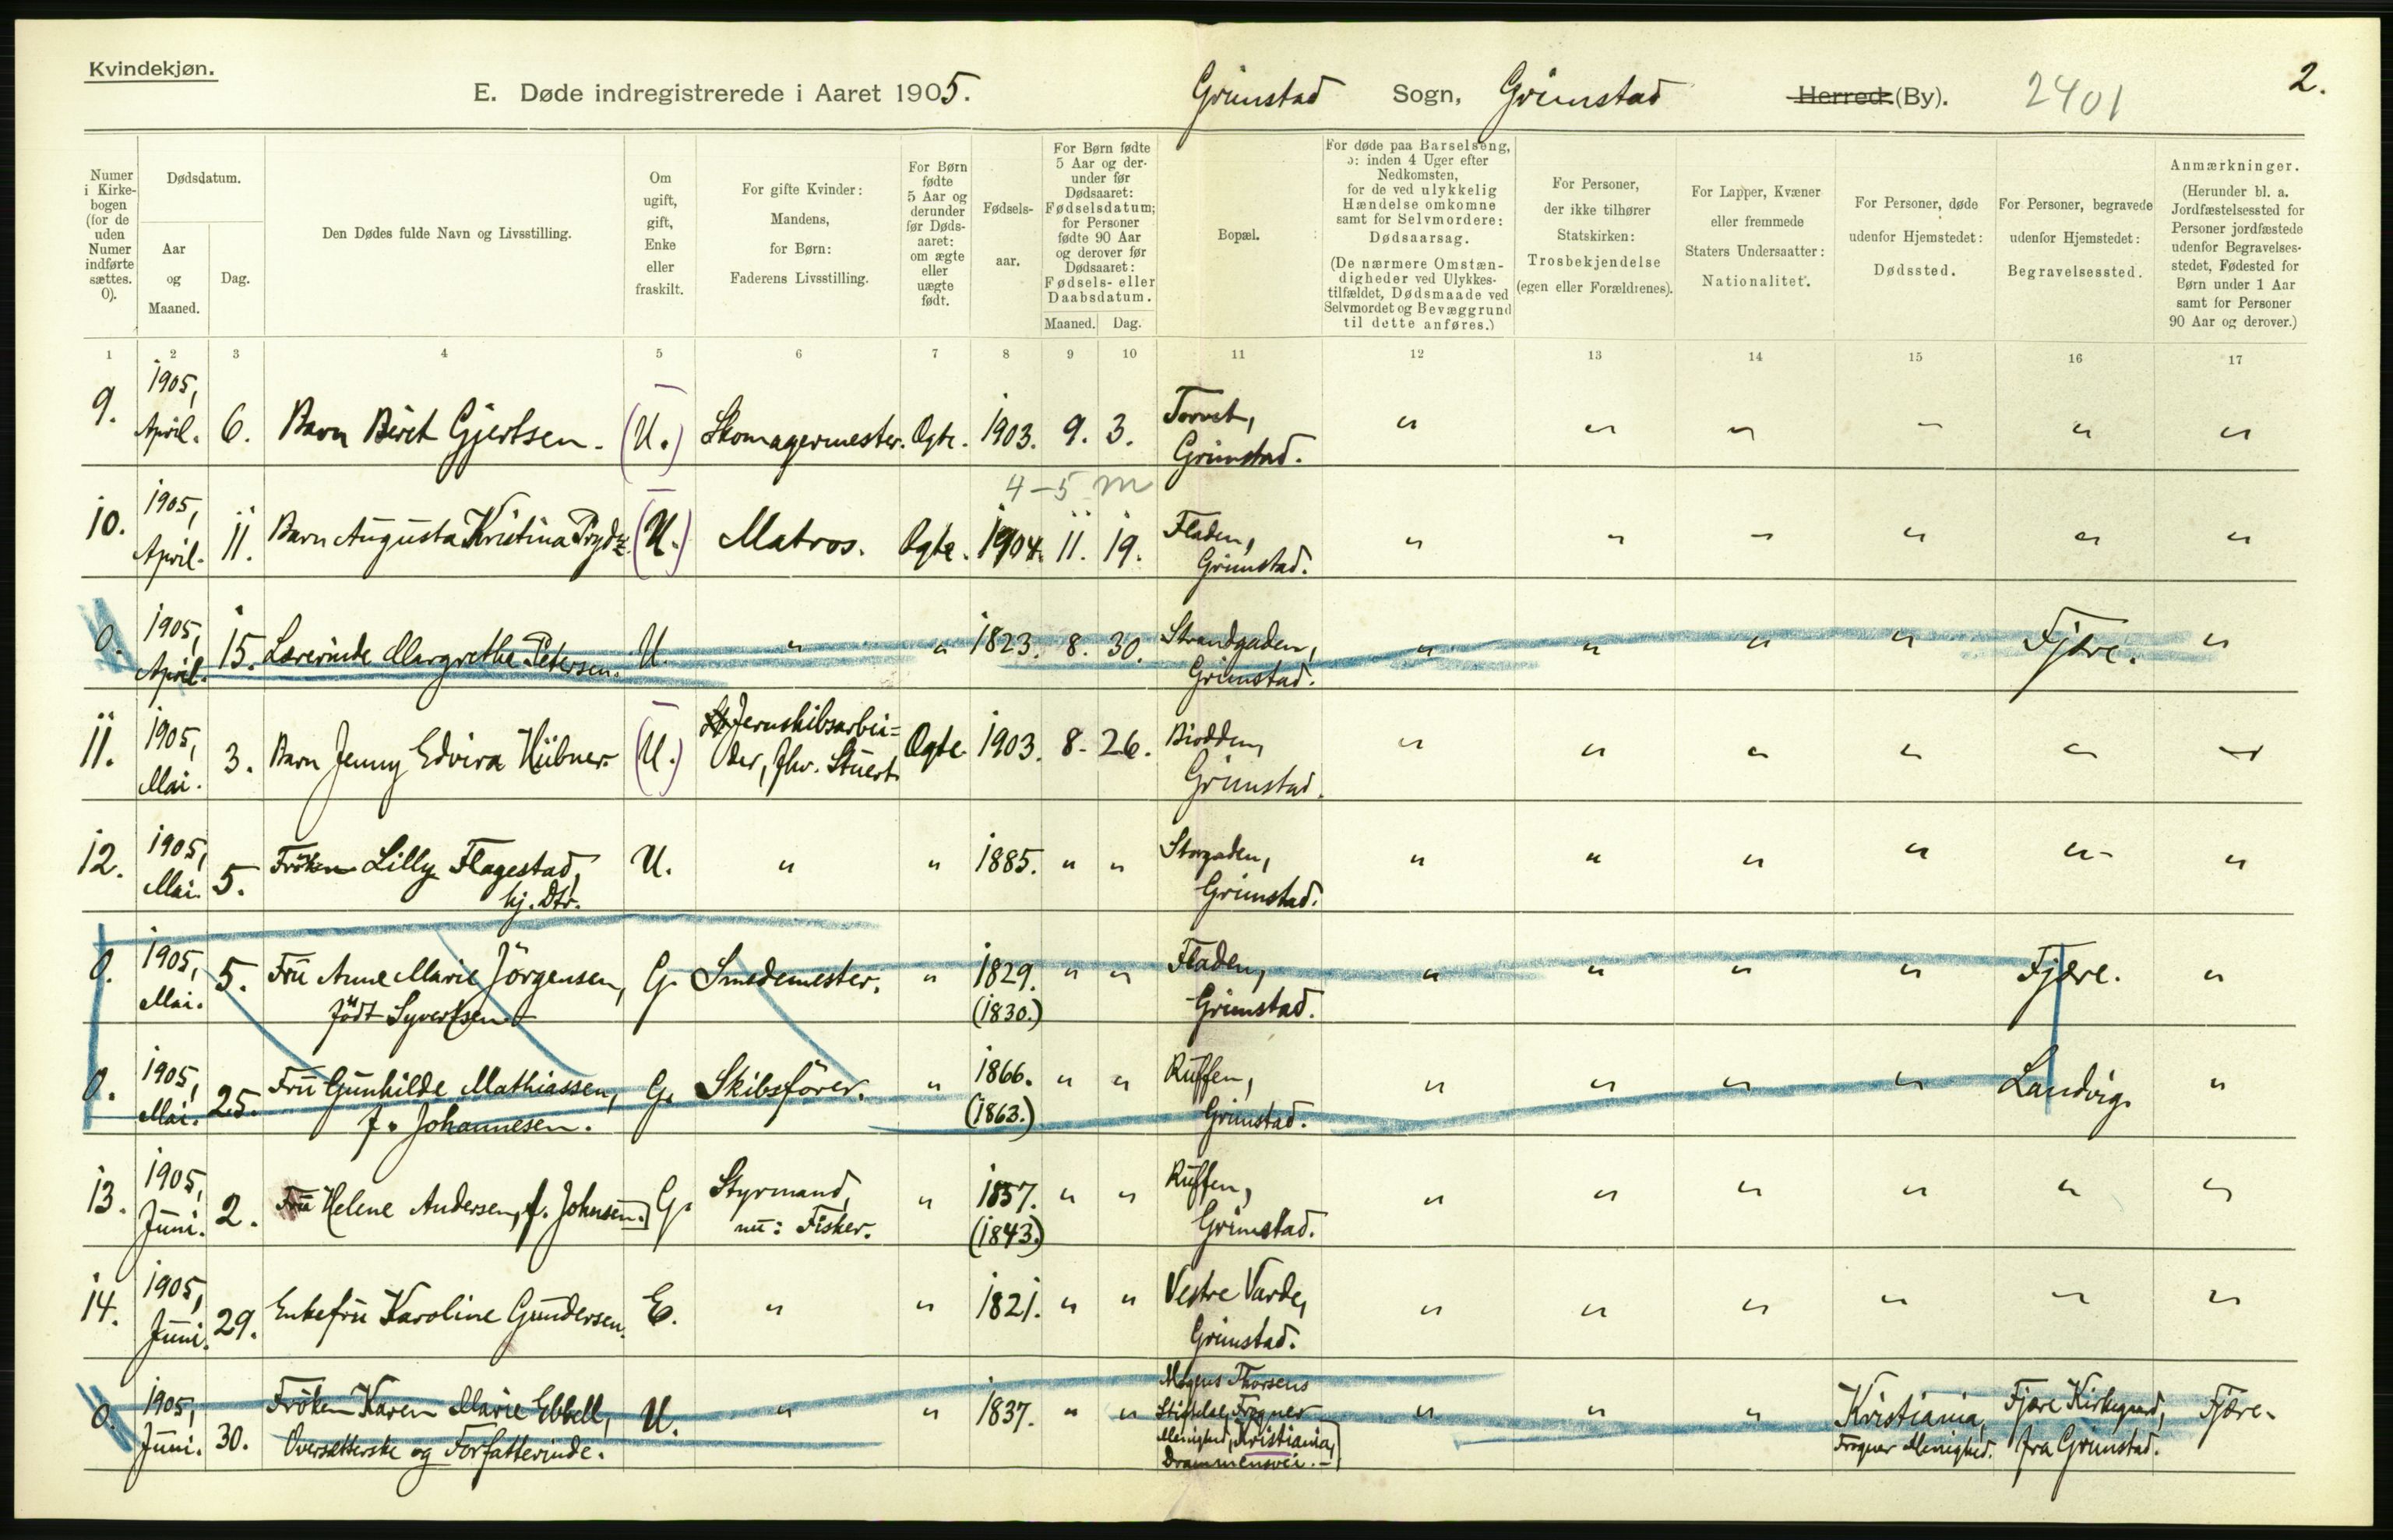 Kvindekjøn.
E. Døde indregistrerede i Aaret 1905. Grimstad Sogn, Grimstad Herred (By). 2401 2.
Numer i Kirkebogen (for de uden Numer indførte sættes. 0).
Dødsdatum.
Aar og Maaned.
Dag.
Den Dødes fulde Navn og Livsstilling.
Om ugift, gift, Enke eller fraskilt.
For gifte Kvinder: Mandens, for Børn: Faderens Livsstilling.
For Børn fødte 5 Aar og derunder før Dødsaaret: om ægte eller uægte født.
Fødselsaar.
For Børn fødte 5 Aar og derunder før Dødsaaret: Fødselsdatum; for Personer fødte 90 Aar og derover før Dødsaaret: Fødsels- eller Daabsdatum.
Maaned. Dag.
Bopæl.
For døde paa Barselseng, ɔ: inden 4 Uger efter Nedkomsten, for de ved ulykkelig Hændelse omkomne samt for Selvmordere: Dødsaarsag. (De nærmere Omstændigheder ved Ulykkestilfældet, Dødsmaade ved Selvmordet og Bevæggrund til dette anføres.)
For Personer, der ikke tilhører Statskirken: Trosbekjendelse (egen eller Forældrenes).
For Lapper, Kvæner eller fremmede Staters Undersaatter: Nationalitet.
For Personer, døde udenfor Hjemstedet: Dødssted.
For Personer, begravede udenfor Hjemstedet: Begravelsessted.
Anmærkninger. (Herunder bl. a. Jordfæstelsessted for Personer jordfæstede udenfor Begravelsesstedet, Fødested for Børn under 1 Aar samt for Personer 90 Aar og derover.)
1 2 3 4 5 6 7 8 9 10 11 12 13 14 15 16 17
9. 1905, April. 6. Barn Birit Gjertsen. (U.) Skomagermester. Ægte. 1903. 9. 3. Torvet, Grimstad. " " " " " "
4-5 m
10. 1905, April. 11. Barn Augusta Kristina Prydz. (U.) Matros. Ægte. 1904. 11. 19. Fladen, Grimstad. " " " " " "
0. 1905, April. 15. Lærerinde Margrethe Petersen. U. " " 1823. 8. 30. Strandgaden, Grimstad. " " " " Fjære. "
11. 1905, Mai. 3. Barn Jenny Edvira Hübner. (U.) Jernskibsarbeider, fhv. Stuert. Ægte. 1903. 8. 26. Biodden, Grimstad. " " " " " "
12. 1905, Mai. 5. Frøken Lilly Flagestad, hj. Dtr. U. " " 1885. " " Storgaden, Grimstad. " " " " " "
0. 1905, Mai. 5. Fru Anne Marie Jörgensen, födt Syvertsen. G. Smedemester. " 1829. (1830.) " " Fladen, Grimstad. " " " " Fjære. "
0. 1905, Mai. 25. Fru Gunhilde Mathiassen, f. Johannesen. G. Skibsförer. " 1866. (1863.) " " Ruffen, Grimstad. " " " " Landvig. "
13. 1905, Juni. 2. Fru Helene Andersen, f. Johnsen. G. Styrmand, nu: Fisker. " 1857. (1843.) " " Ruffen, Grimstad. " " " " " "
14. 1905, Juni. 29. Enkefru Karoline Gundersen. E. " " 1821. " " Vestre Varde, Grimstad. " " " " " "
0. 1905, Juni. 30. Fröken Karen Marie Ebbell, Oversætterske og Forfatterinde. U. " " 1837. " " Mogens Thorsens Stiftelse, Frogner Menighed, Kristiania, Drammensvei. " " " Kristiania, Frogner Menighed. Fjære Kirkegaard, fra Grimstad. Fjære.